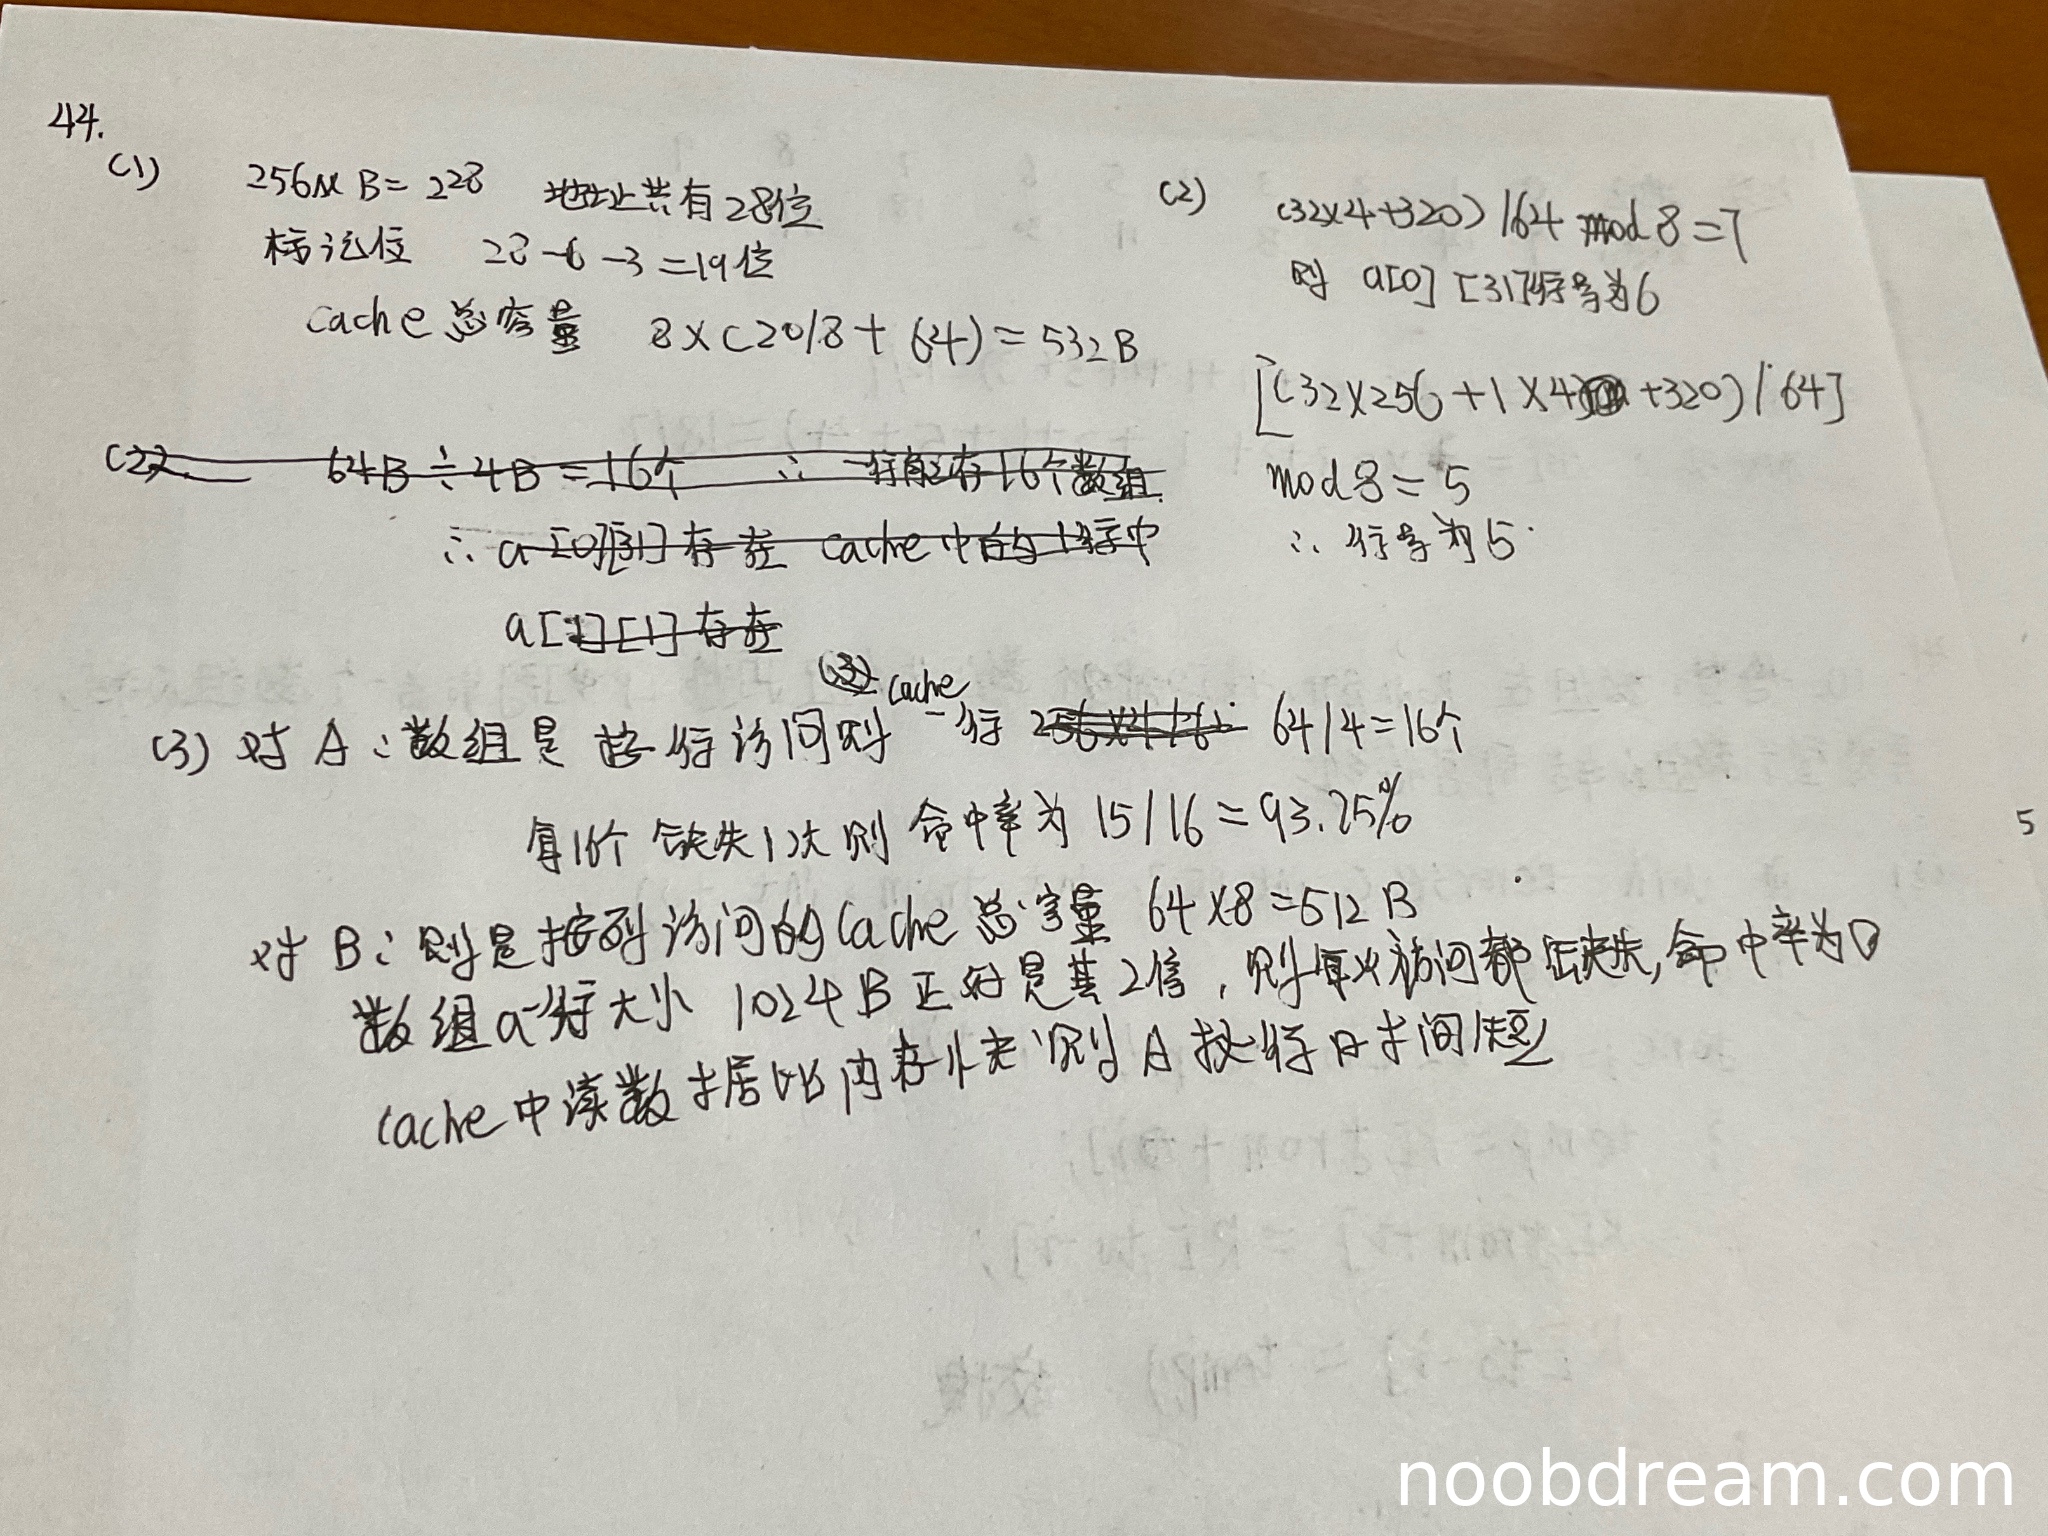 44.
(1)
256M B = 2²⁸ 地址共有28位
标记位 28-6-3=19位
Cache 总容量 8×(20/8+64)=532B
(2)
(32×4+320)/64 mod 8=7
则 a[0][31]行号为6
[(32×256+1×4)+320)/64]
mod 8 = 5
∴ 行号为5.
(2) 64B÷4B=16个 ∴ 一行能存16个数组
∴ a[0][31]存在 cache中的1行中
a[1][1]存在
(3) 对A:数组是按行访问则cache一行 64/4=16个
每16个缺失1次则 命中率为 15/16=93.25%
对B:则是按列访问的Cache总容量 64×8=512B
数组a一行大小 1024B正好是其2倍,则每次访问都缺失,命中率为0
Cache中读数据比内存快则A执行时间短
5
noobdream.com